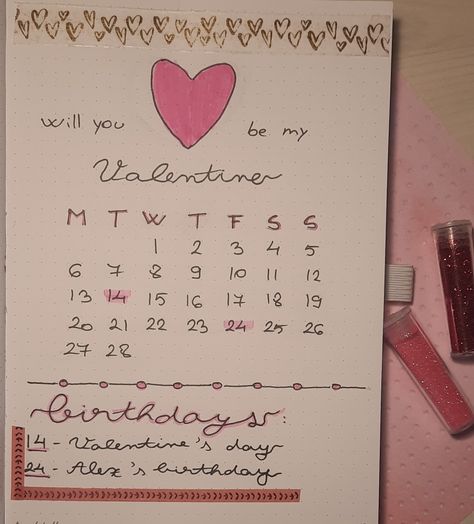 will you be my
Valentine
M T W T F S S
1 2 3 4 5
6 7 8 9 10 11 12
13 14 15 16 17 18 19
20 21 22 23 24 25 26
27 28
birthdays:
14 - Valentine's day
24 - Alex's birthday